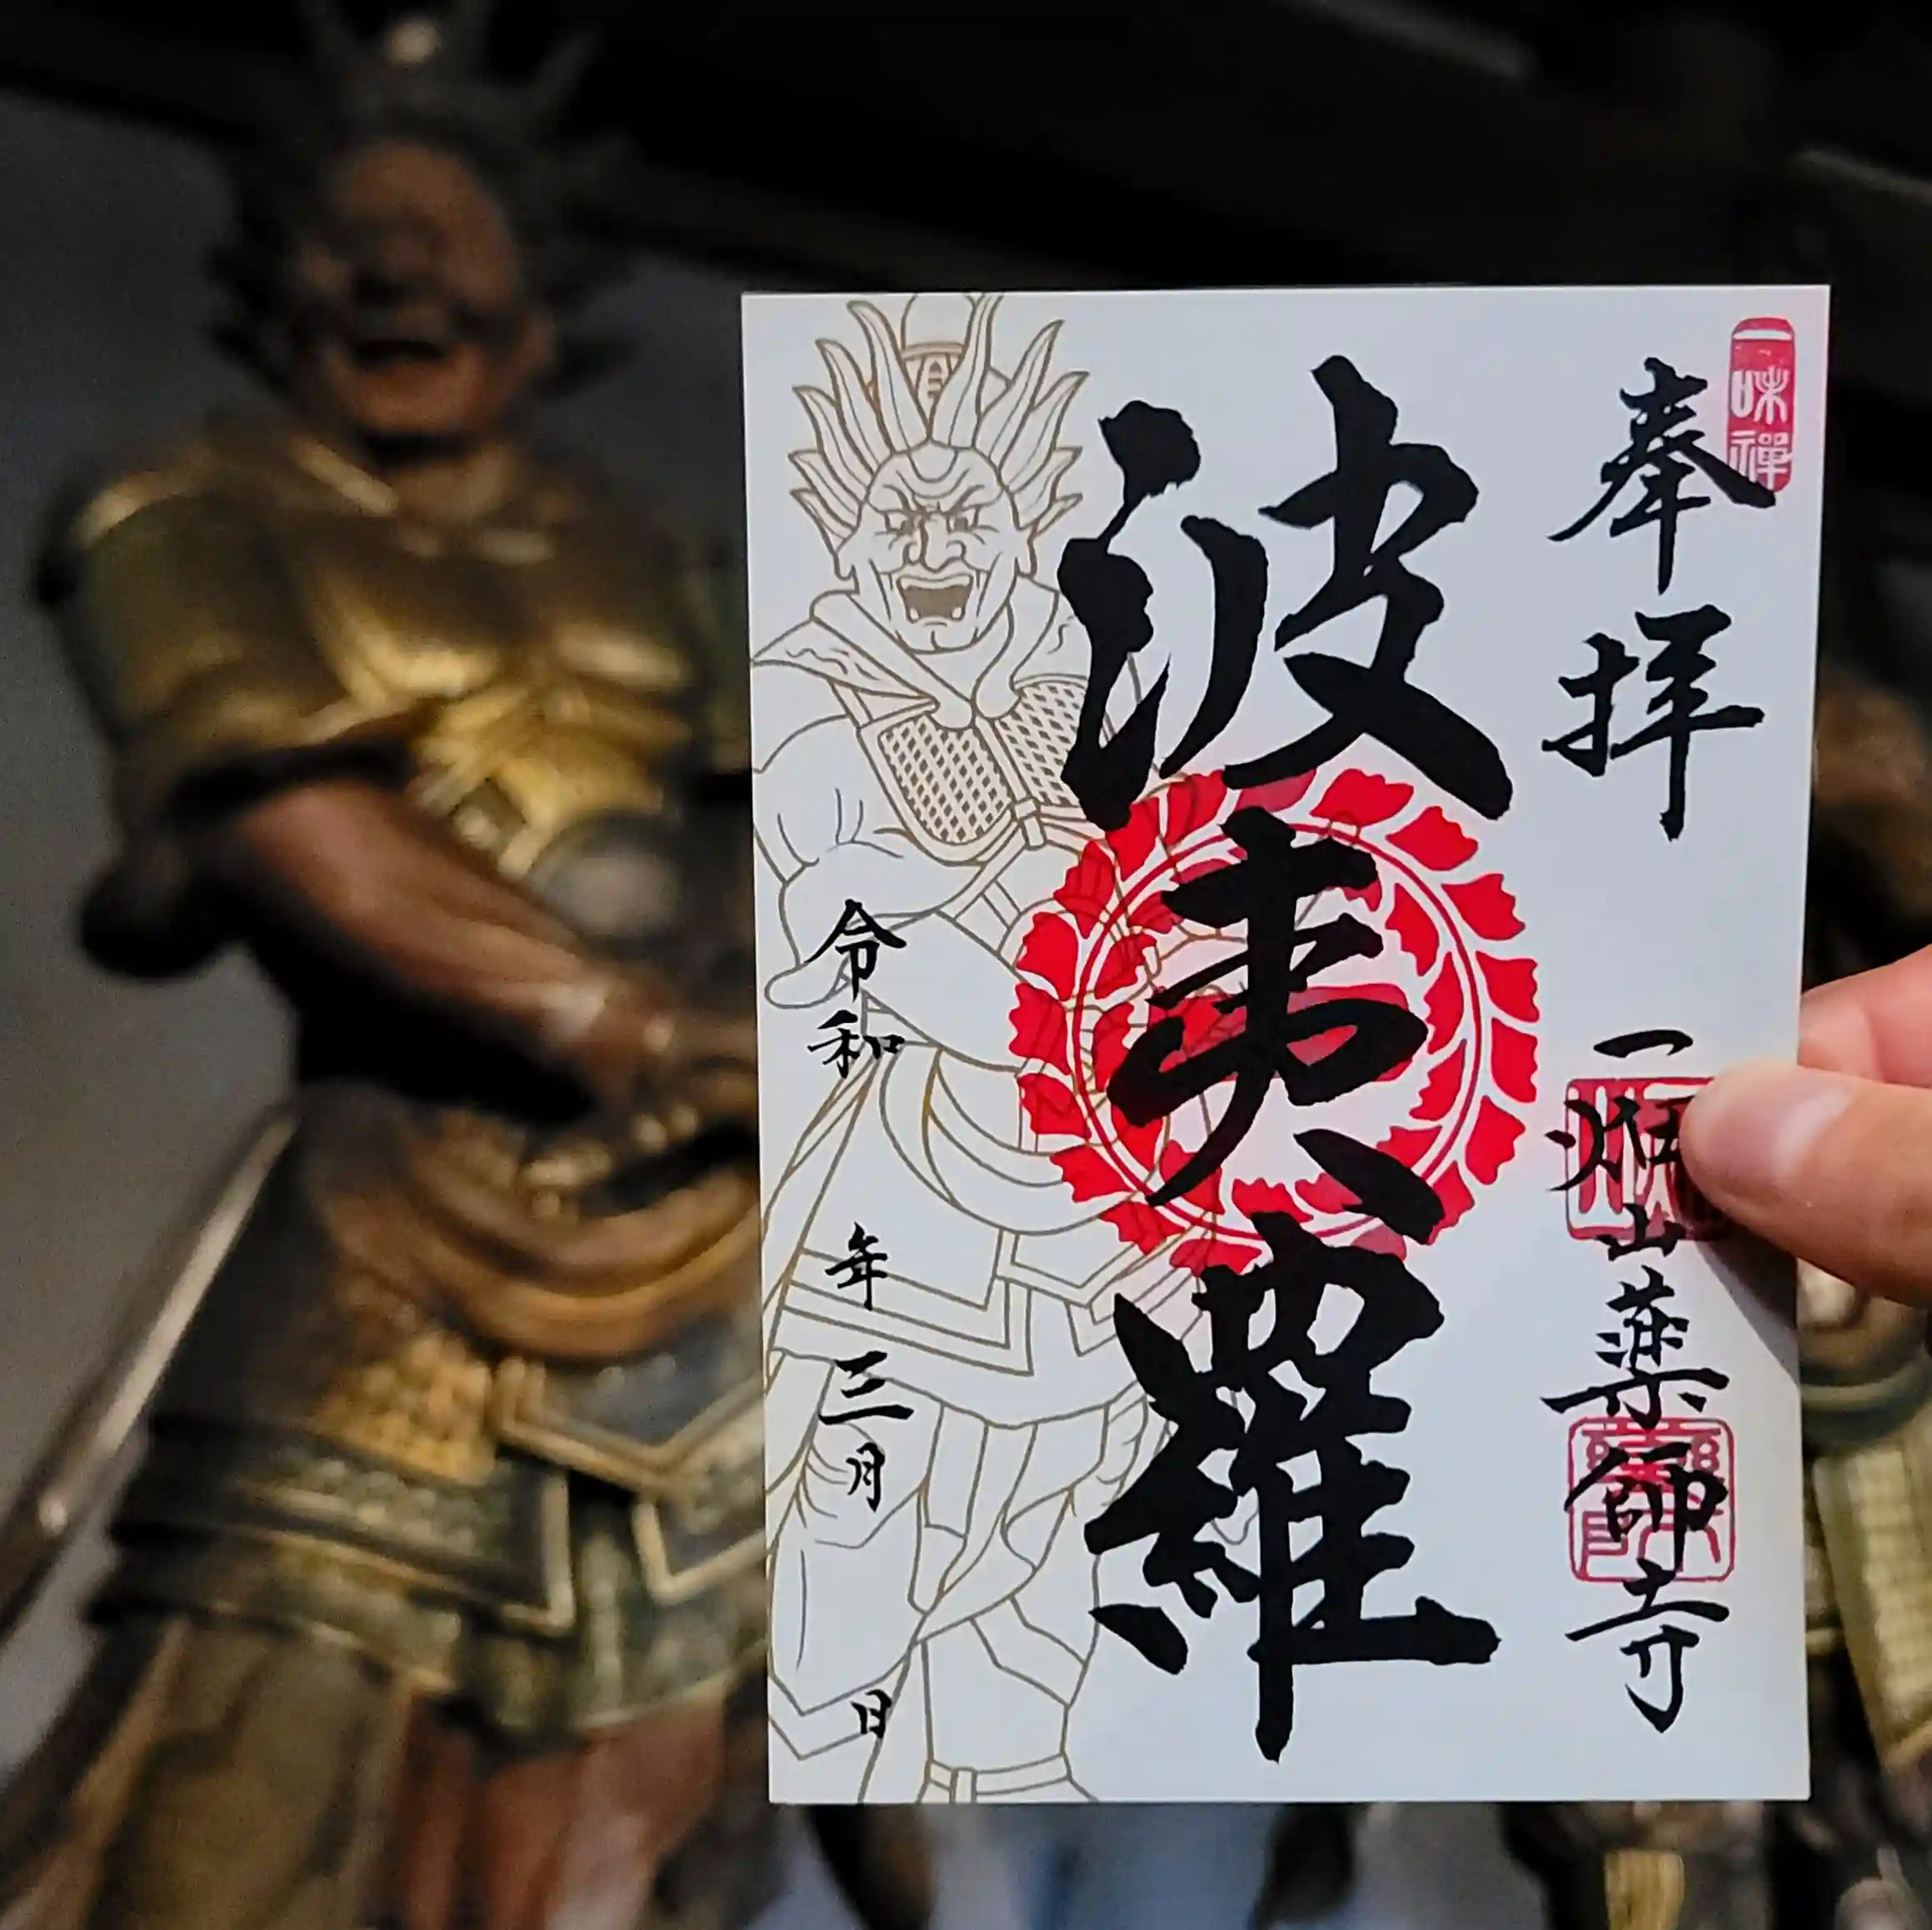 一味禪
奉拝
一畑山薬師寺
波夷羅
令和 年三月 日